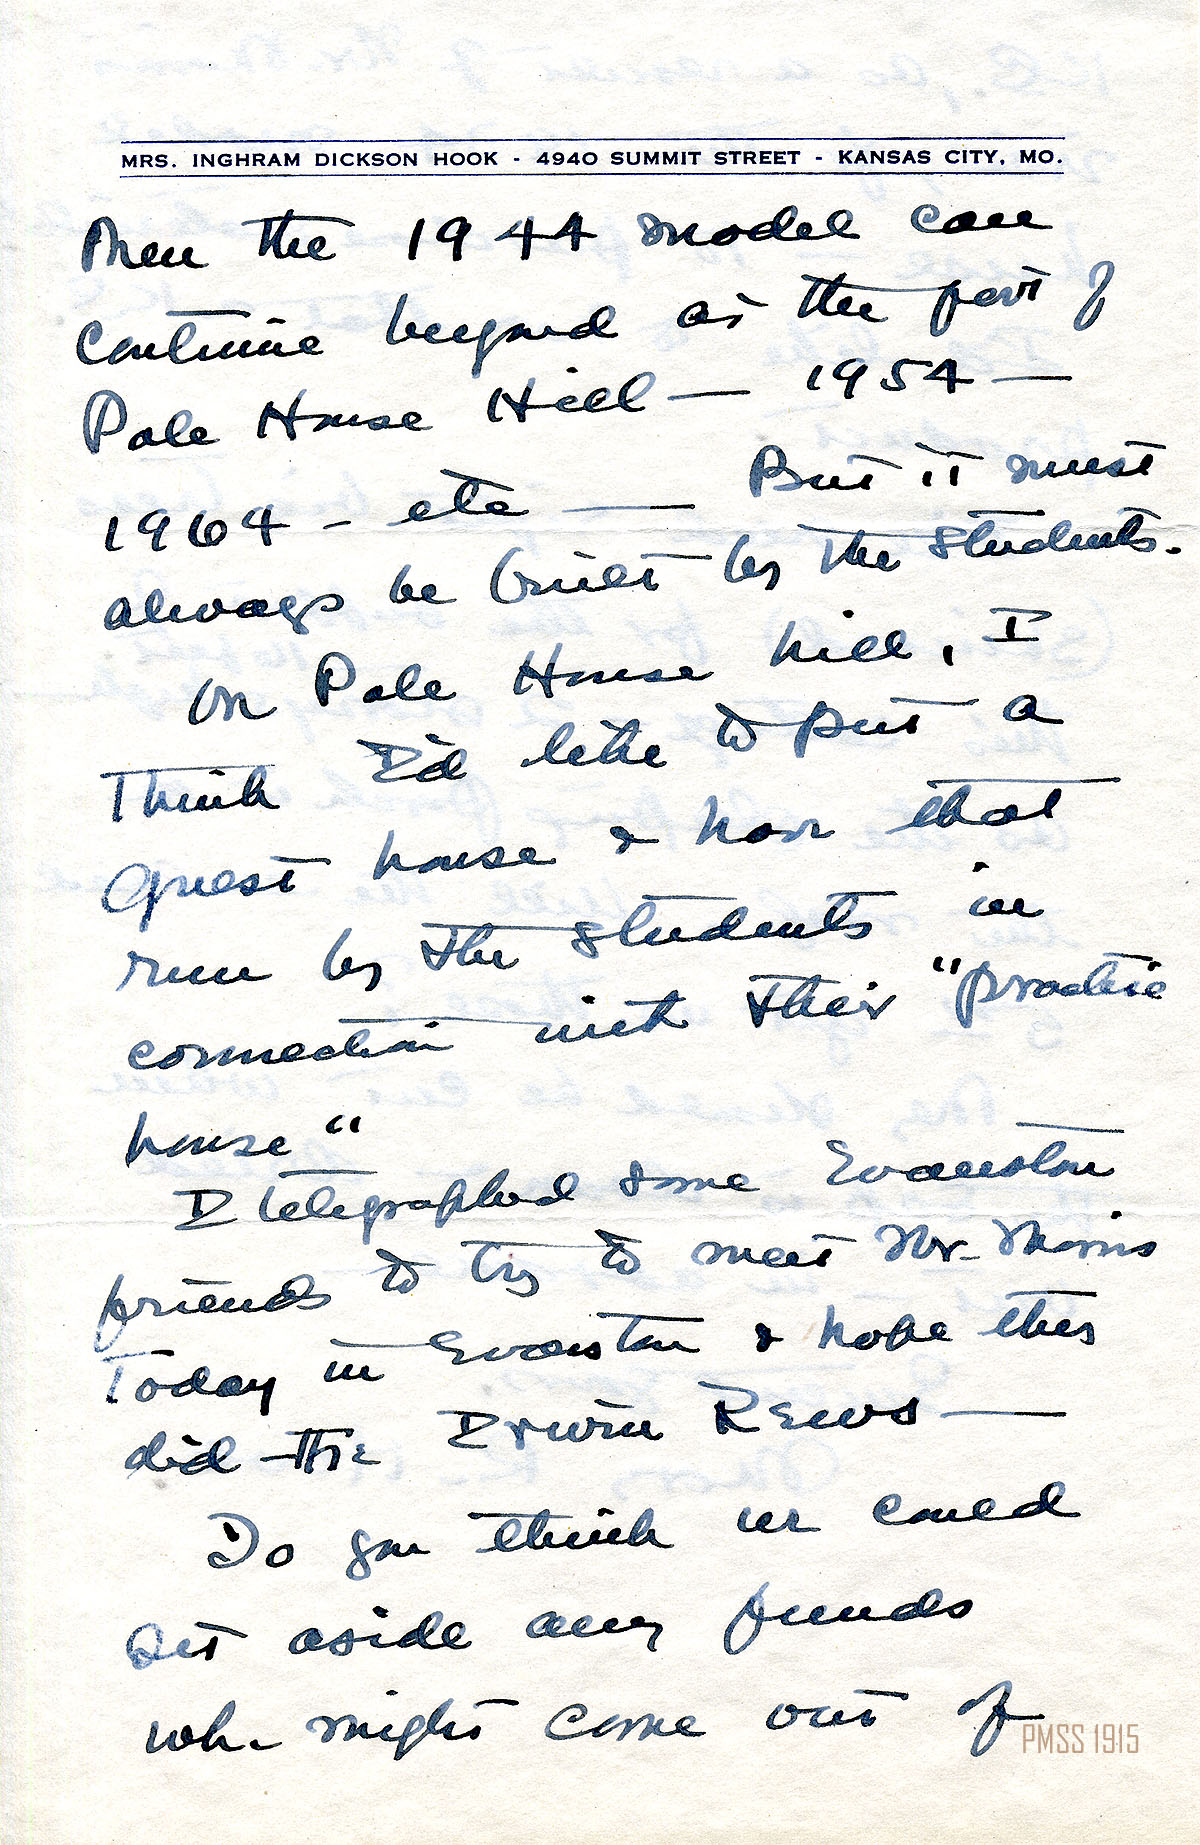 MRS. INGHRAM DICKSON HOOK - 4940 SUMMIT STREET - KANSAS CITY, MO.
Then the 1944 model can
continue beyond as the part of
Pole House Hill — 1954 —
1964 - etc — But it must
always be built by the students.
On Pole House hill, I
Think I'd like to put a
guest house & have that
run by the students in
connection with their "practice
house"
I telegraphed some Evanston
friends to try to meet Mr. Morris
Today in Evanston & hope they
did — The Irwin Rews —
Do you think we could
set aside any funds
wh. might come out of
PMSS 1915